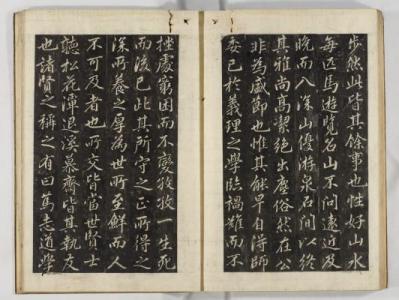 然此皆其餘事也性好山水
每匹馬遊覽名山不問遠近及
晚而入深山優游泉石間以終
其雅尚高潔絕出塵俗然在公
非為盛節也惟其能早自得師
委已於義理之學臨禍難而不
挫處窮困而不變孜孜一生死
而後已此其所守之正所得之
深所養之厚為世所至鮮而人
不可及者也所交皆當世賢士
聽松花潭退溪慕齋皆其執友
也諸賢之稱之有曰篤志道學